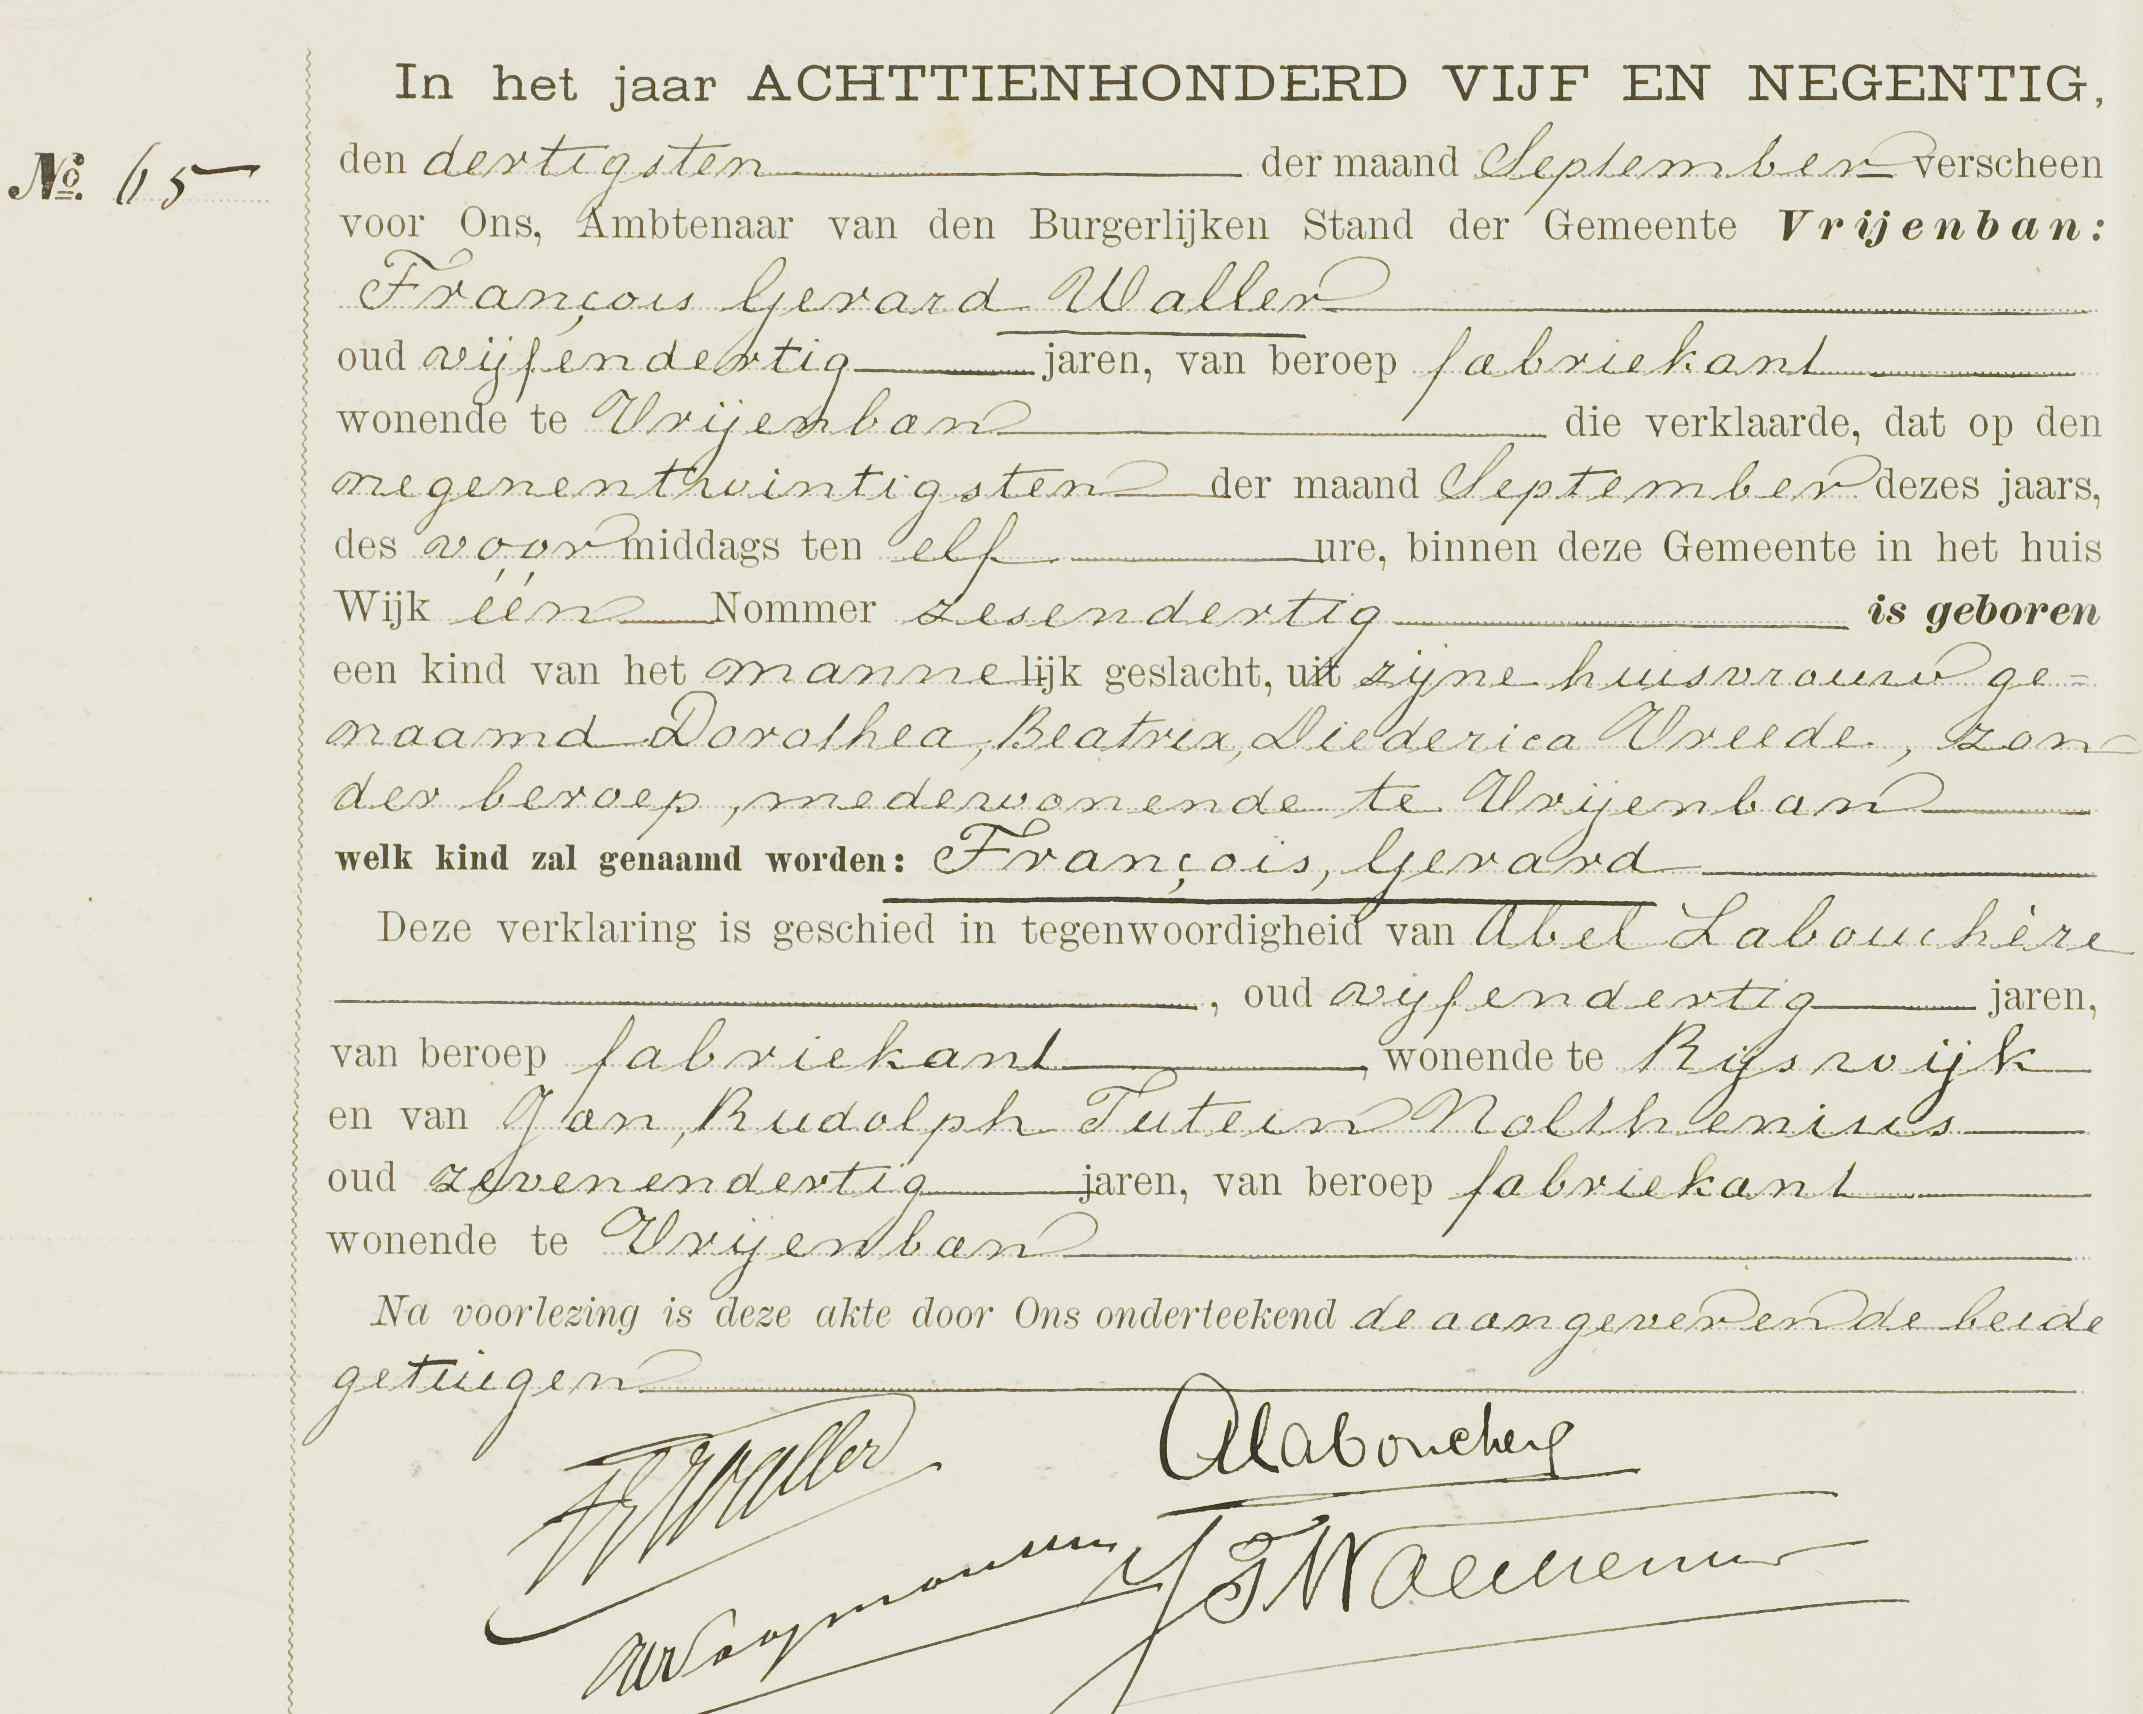 In het jaar ACHTTIENHONDERD VIJF EN NEGENTIG,
No. 65
den dertigsten der maand September verscheen
voor Ons, Ambtenaar van den Burgerlijken Stand der Gemeente Vrijenban:
François Gerard Waller
oud vijfendertig jaren, van beroep fabriekant
wonende te Vrijenban die verklaarde, dat op den
negenentwintigsten der maand September dezes jaars,
des voormiddags ten elf ure, binnen deze Gemeente in het huis
Wijk één Nommer zesendertig is geboren
een kind van het mannelijk geslacht, uit zijne huisvrouw ge=
naamd Dorothea, Beatrix, Diederica Vreede, zon-
der beroep, medewonende te Vrijenban
welk kind zal genaamd worden: François, Gerard
Deze verklaring is geschied in tegenwoordigheid van Abel Labouchère
, oud vijfendertig jaren,
van beroep fabriekant, wonende te Rijswijk
en van Jan, Rudolph Tutein Nolthenius
oud zevenendertig jaren, van beroep fabriekant
wonende te Vrijenban
Na voorlezing is deze akte door Ons onderteekend de aangever en de beide
getuigen
FGWaller
ALabouchere